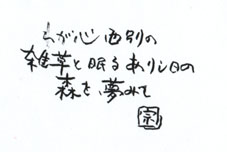 わが心 西別の
雑草と眠る ありし日の
森を 夢みて